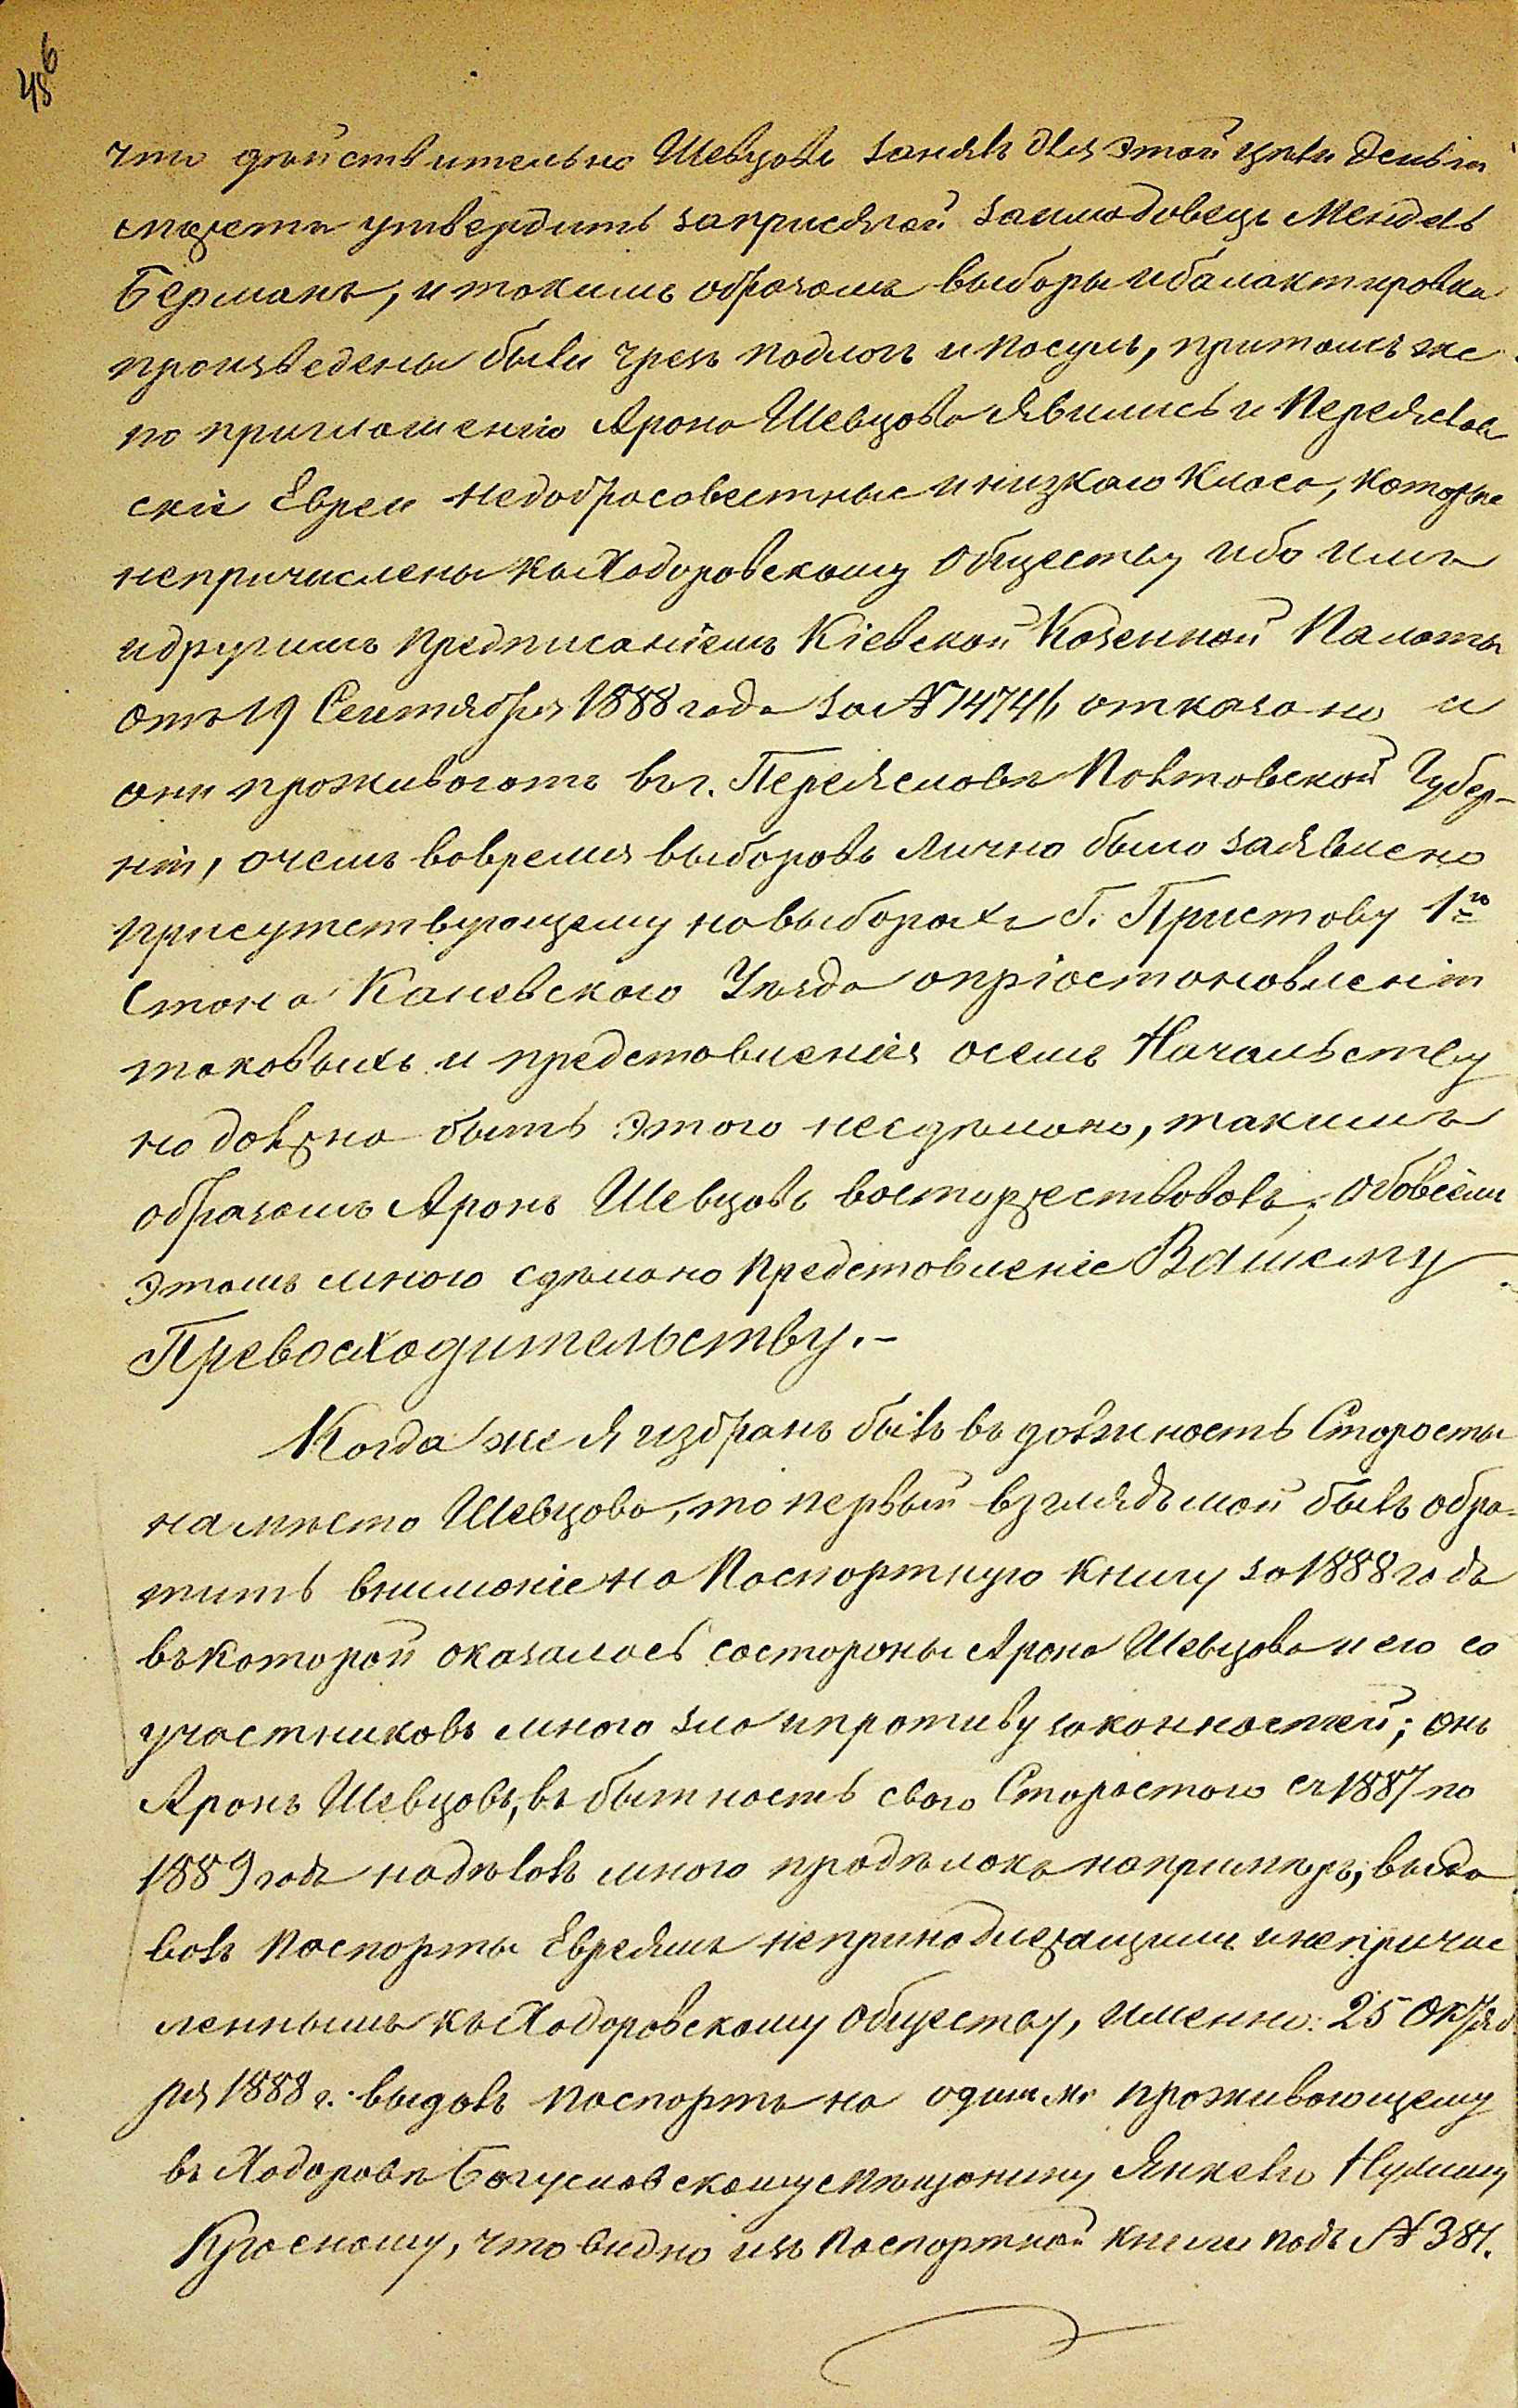 486
что дѣйствительно Шевцовъ занялъ для этой цѣли деньги
можетъ утвердить заприсягой заимодовецъ Мендель
Берманъ, и такимъ образомъ выборы ибалактировка
произведены были чрезъ подлогъ и посулъ, притомъ же
по приглашенію Арона Шевцова явились и Переяслав
скіе Евреи недобросовестные и низкаго класа, которые
непричислены къ Ходоровскому Обществу ибо имъ
идругимъ предписаніемъ Кіевской Казенной Палаты
отъ 19 Сентября 1888 года за № 14746 отказано и
они проживаютъ въ г. Переяславѣ Полтовской Губер-
ніи, очемъ вовремя выборовъ лично было заявлено
присутствующему навыборахъ Г. Приставу 1го
Стана Каневского Уѣзда опріостановленіи
таковыхъ и представленія осемъ Начальству
но должно быть этого несдѣлано, такимъ
образомъ Аронъ Шевцовъ восторжествовалъ; обовсемъ
этомъ мною сдѣлано представленіе Вашему
Превосходительству.-
Когда же я избранъ былъ въ должность Старосты
на мѣсто Шевцова, то первый взглядъ мой былъ обра-
тить вниманіе на Паспортную книгу за 1888 годъ
въ которой оказалось состороны Арона Шевцова и его со
участниковъ много зла и противузаконностей; онъ
Аронъ Шевцовъ, въ бытность свою Старостою съ 1887 по
1889 годъ надѣлалъ много продѣлокъ напримѣръ, выда
валъ паспорты Евреямъ непринадлежащимъ и непричис
леннымъ къ Ходоровскому обществу, именно: 25 Октяб
ря 1888 г. выдалъ паспортъ на одинъ м. проживающему
въ Ходоровѣ Богуславскому мѣщанину Янкелю Нухиму
Красному, что видно изъ паспортной книги подъ № 381.